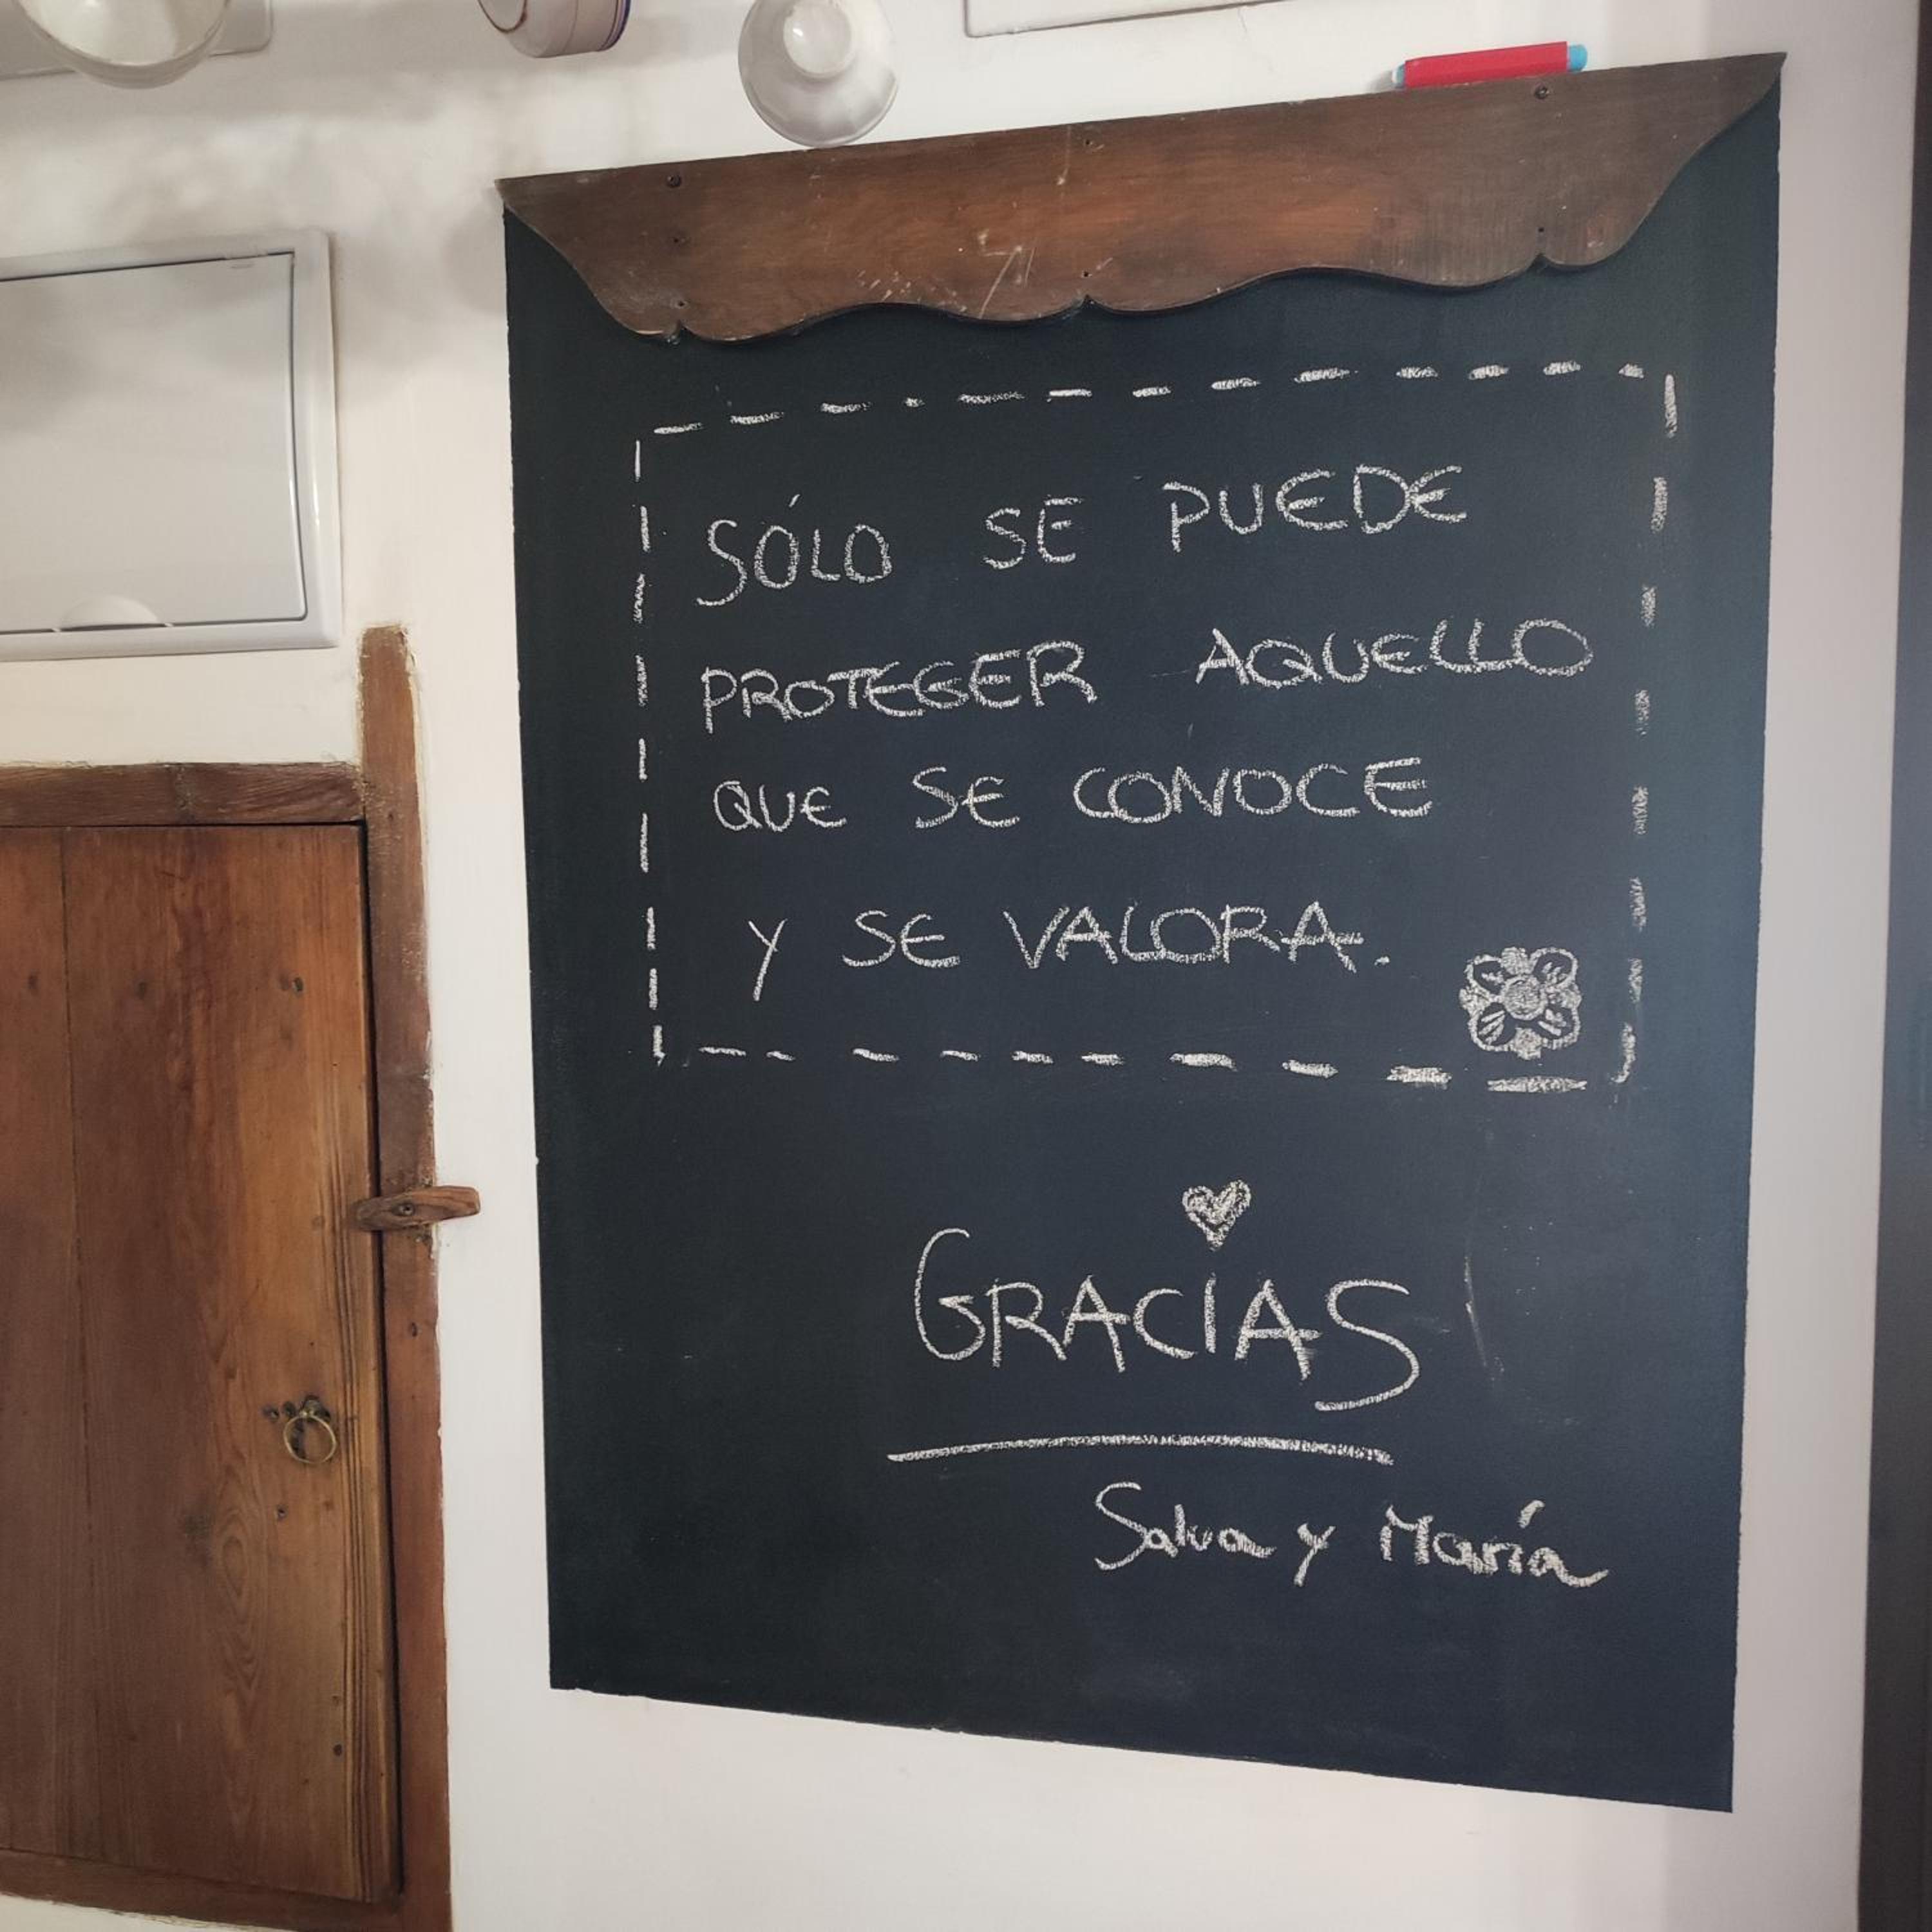 SÓLO SE PUEDE
PROTEGER AQUELLO
QUE SE CONOCE
Y SE VALORA.
GRACIAS
Salva y María